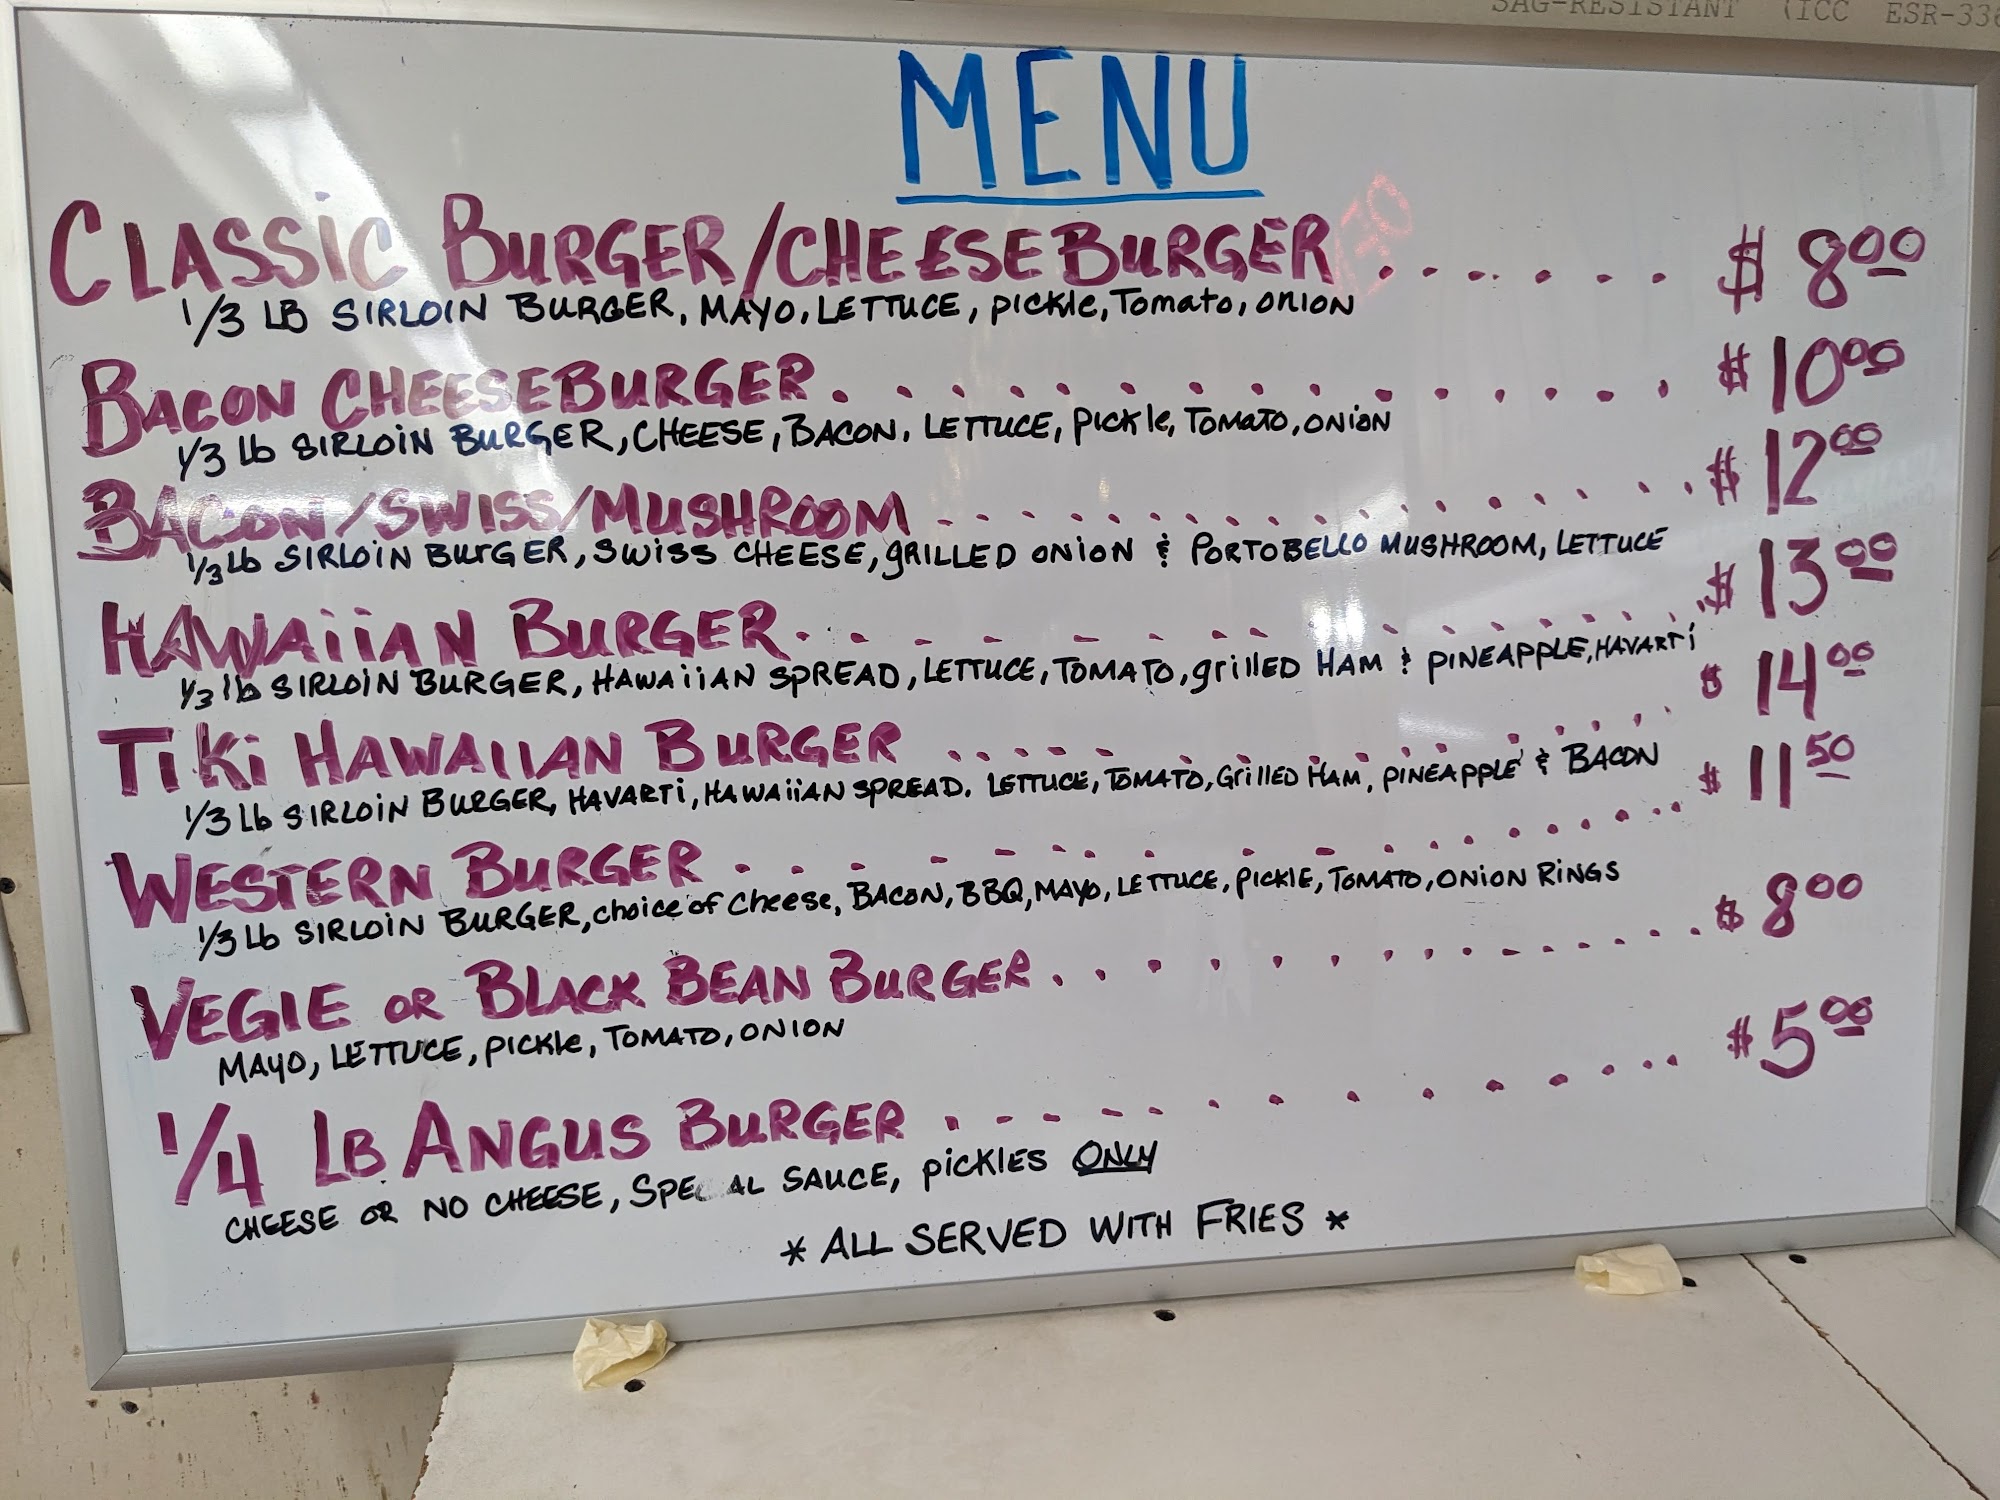 SAG-RESISTANT (ICC ESR-336
MENU
CLASSIC BURGER/CHEESEBURGER . . . . . . $ 8.00
1/3 LB SIRLOIN BURGER, MAYO, LETTUCE, pickle, Tomato, onion
BACON CHEESEBURGER . . . . . . . . . . . . . $ 10.00
1/3 lb SIRLOIN BURGER, CHEESE, BACON, LETTUCE, pickle, Tomato, onion
BACON/SWISS/MUSHROOM . . . . . . . . . . . . . $ 12.00
1/3 lb SIRLOIN BURGER, SWISS CHEESE, GRILLED ONION & PORTOBELLO MUSHROOM, LETTUCE
HAWAIIAN BURGER . . . . . . . . . . . . . $ 13.00
1/3 lb SIRLOIN BURGER, HAWAIIAN SPREAD, LETTUCE, TOMATO, grilled HAM & PINEAPPLE, HAVARTI
TIKI HAWAIIAN BURGER . . . . . . . . . . . . . $ 14.00
1/3 lb SIRLOIN BURGER, HAVARTI, HAWAIIAN SPREAD. LETTUCE, TOMATO, GRILLED HAM, PINEAPPLE & BACON
WESTERN BURGER . . . . . . . . . . . . . $ 11.50
1/3 lb SIRLOIN BURGER, choice of cheese, BACON, BBQ, MAYO, LETTUCE, PICKLE, TOMATO, ONION RINGS
VEGIE OR BLACK BEAN BURGER . . . . . . . . . . . . . $ 8.00
MAYO, LETTUCE, pickle, TOMATO, ONION
1/4 LB ANGUS BURGER . . . . . . . . . . . . . $ 5.00
CHEESE OR NO CHEESE, SPECIAL SAUCE, pickles ONLY
* ALL SERVED WITH FRIES *